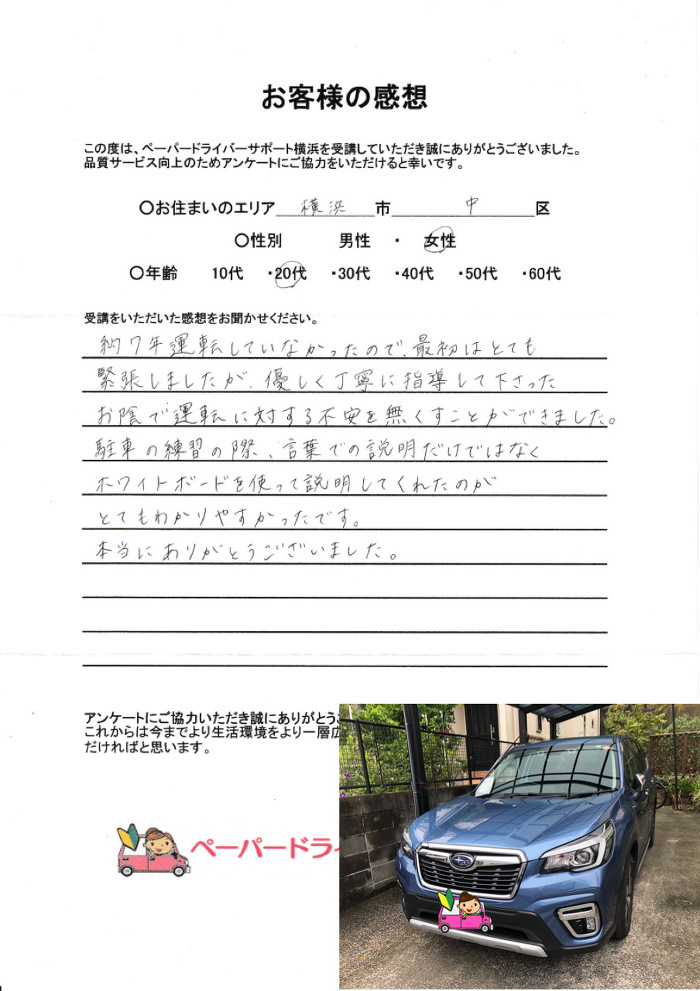 お客様の感想
この度は、ペーパードライバーサポート横浜を受講していただき誠にありがとうございました。
品質サービス向上のためアンケートにご協力をいただけると幸いです。
〇お住まいのエリア 横浜 市 中 区
〇性別 男性 ・ 女性
〇年齢 10代 ・20代 ・30代 ・40代 ・50代 ・60代
受講をいただいた感想をお聞かせください。
約7年運転していなかったので、最初はとても
緊張しましたが、優しく丁寧に指導して下さった
お陰で運転に対する不安を無くすことができました。
駐車の練習の際、言葉での説明だけではなく
ホワイトボードを使って説明してくれたのが
とてもわかりやすかったです。
本当にありがとうございました。
アンケートにご協力いただき誠にありがとうご
これからは今までより生活環境をより一層広
だければと思います。
ペーパードライ